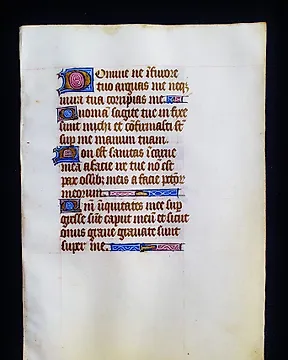 Domine ne ī furore
tuo arguas me neqȝ
in ira tua corripias me.
Quoniā sagitte tue in fixe
sunt michi et cōfirmasti sr̄
sup me manum tuam.
Non est sanitas ī carne
mea a facie ire tue nō est
pax ossibȝ meis a facie pctōr̄
meorum.
Qm̄ iniquitates mee sup
gresse sūt caput meū et sicut
onus graue grauate sunt
super me.